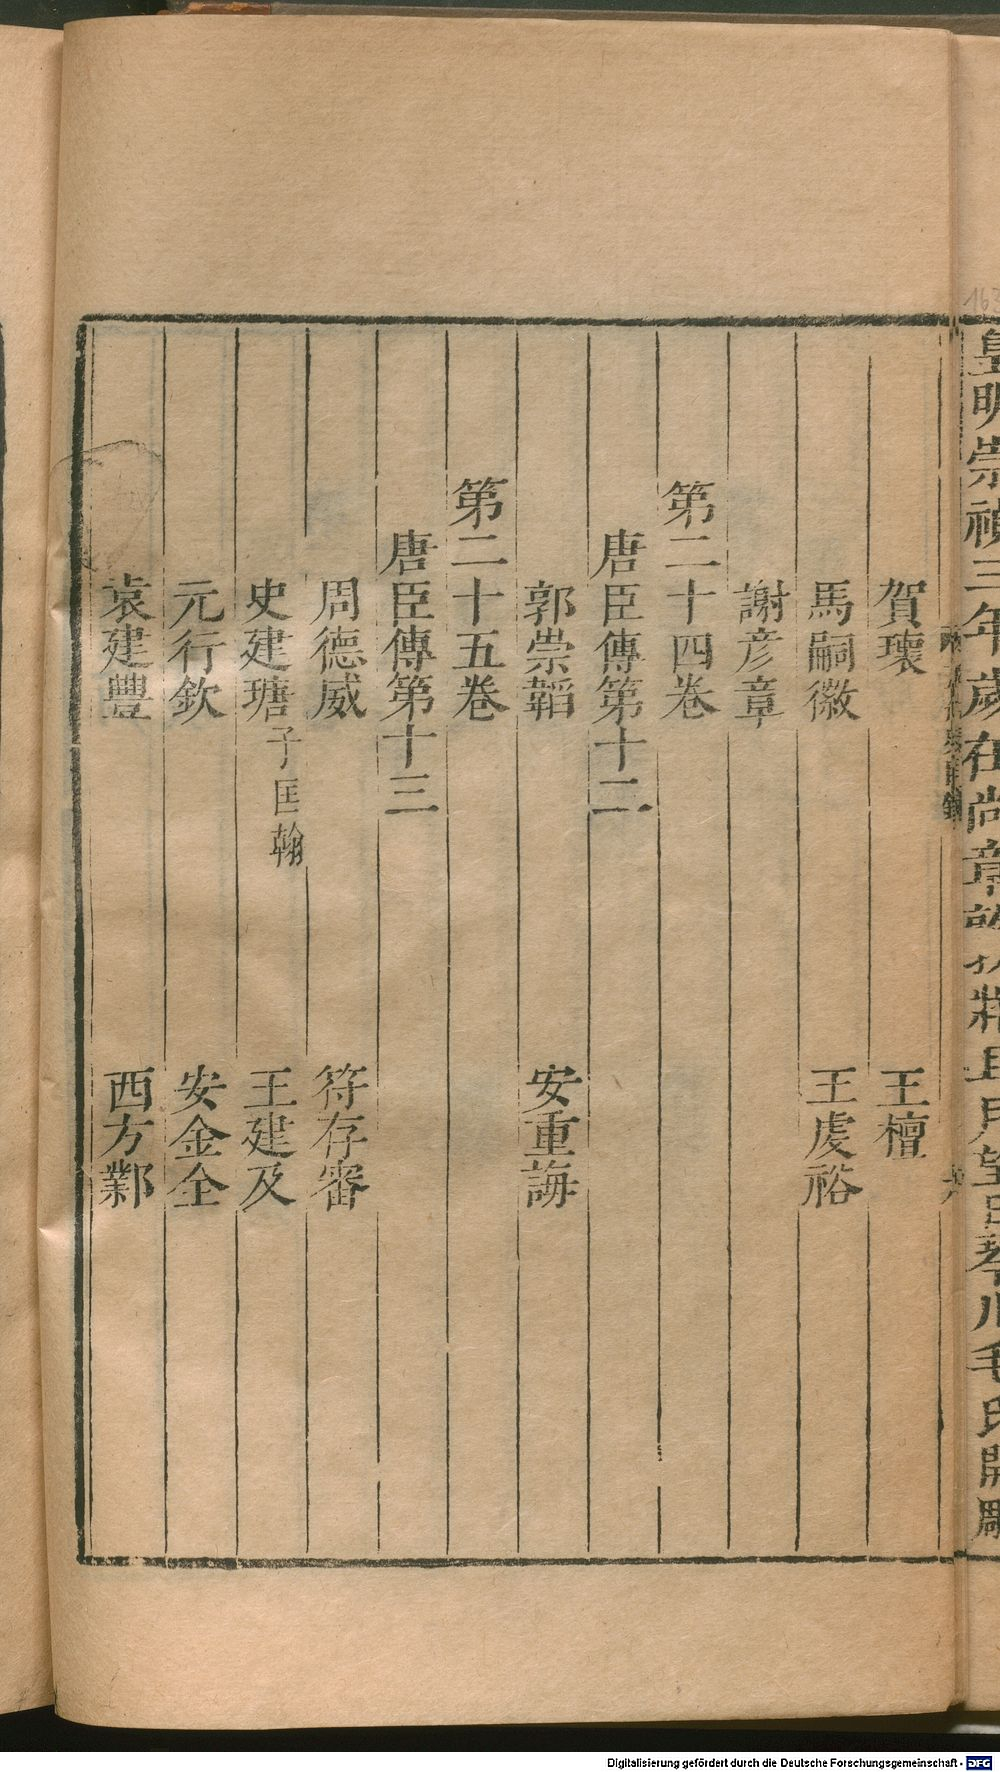 皇明崇禎三年歲在尚章
琴川毛氏開雕
賀瓌 王檀
馬嗣徽 王虔裕
謝彥章
第二十四卷
唐臣傳第十二
郭崇韜 安重誨
第二十五卷
唐臣傳第十三
周德威 符存審
史建瑭 子匡翰 王建及
元行欽 安金全
袁建豐 西方鄴
Digitalisierung gefördert durch die Deutsche Forschungsgemeinschaft - DFG